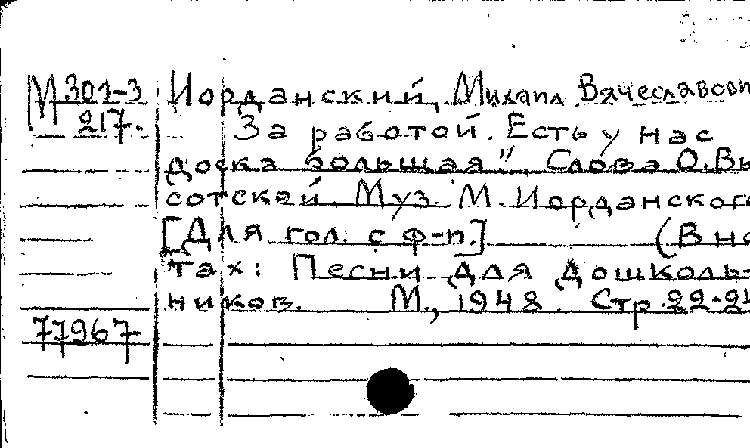 М 301-3 Иорданский, Михаил Вячеславови
217. За работой. „Есть у нас
доска большая". Слова О. Вы
сотской Муз М. Иорданского
[Для гол. с ф-п.] (В но
тах: Песни для дошколь-
ников. М., 1948. Стр. 22-2
77967